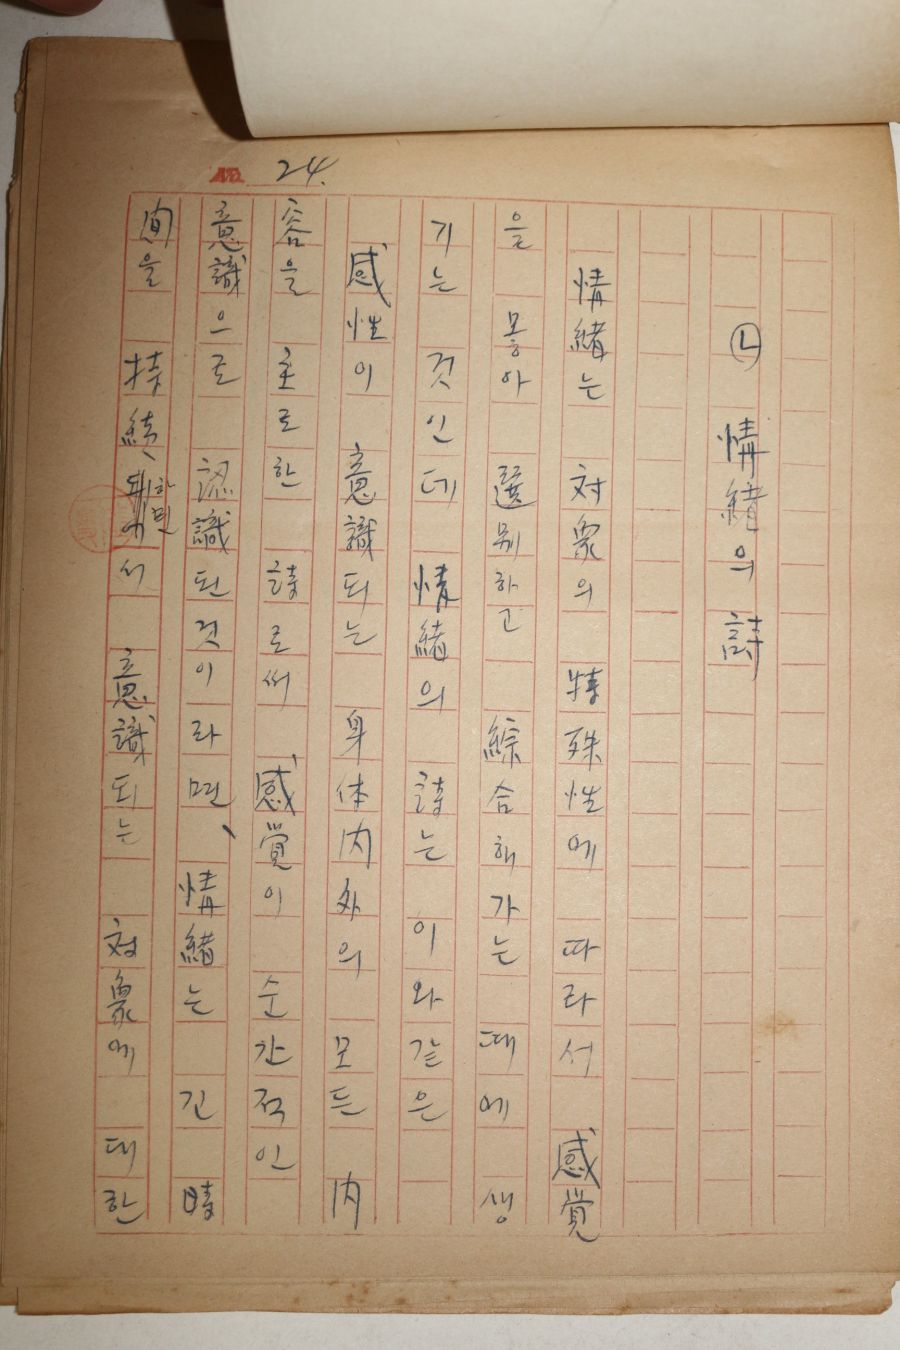 24.
㉡ 情緖의 詩
情緖는 対象의 特殊性에 따라서 感覚
을 몽아 選別하고 綜合해가는 때에 생
기는 것인데 情緖의 詩는 이와같은
感性이 意識되는 身体内外의 모든 内
容을 主로한 詩로써 感覚이 순간적인
意識으로 認識된것이라면、情緖는 긴 時
间을 持続하면서 意識되는 対象에 대한